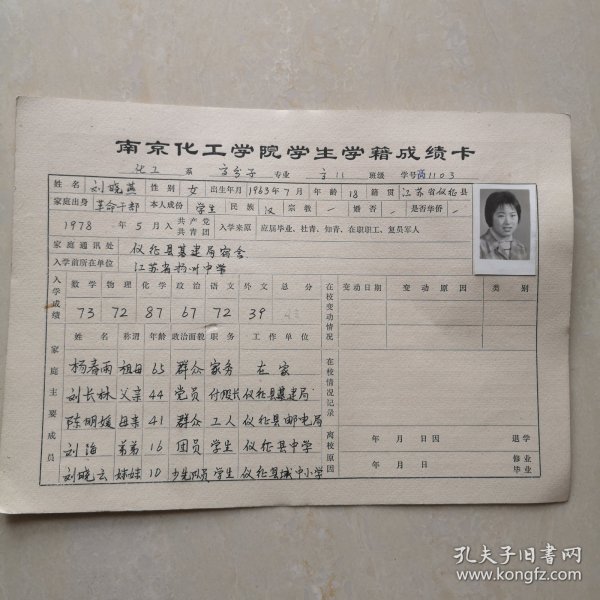 南京化工学院学生学籍成绩卡
化工 系 高分子 专业 高11 班级 学号 高1103
姓名 刘晓燕 性别 女 出生年月 1963年7月 年龄 18 籍贯 江苏省仪征县
家庭出身 革命干部 本人成份 学生 民族 汉 宗教 一 婚否 . 是否华侨 .
1978 年 5 月入 共产党 共青团 入学来原 应届毕业、社青、知青、在职职工、复员军人
家庭通讯处 仪征县基建局宿舍
入学前所在单位 江苏省扬州中学
入学成绩 数学 物理 化学 政治 语文 外文 总分
73 72 87 67 72 39
在校变动情况 变动日期 变动原因 类别
家庭主要成员 姓名 称谓 年龄 政治面貌 职务 工作单位
杨春雨 祖母 65 群众 家务 在家
刘长林 父亲 44 党员 付股长 仪征县基建局
陈明媛 母亲 41 群众 工人 仪征县邮电局
刘海 弟弟 16 团员 学生 仪征县中学
刘晓云 妹妹 10 少先队员 学生 仪征县城中小学
在校情况记录
离校原因 年 月 日因 退学
年 月 日 修业 毕业
孔夫子旧书网
www.kongfz.com